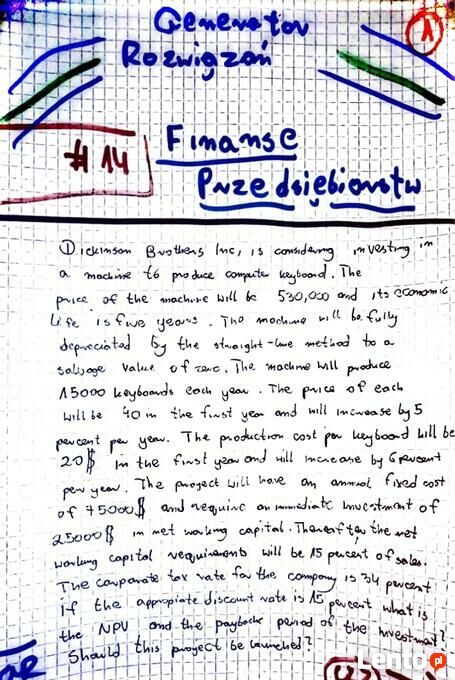 Generator
Rozwiązań
1
#14
Finanse
Przedsiębiorstw
Dickinson Brothers Inc, is considering investing in
a machine to produce computer keyboard. The
price of the machine will be 530,000 and its economic
Life is five years. The machine will be fully
depreciated by the straight-line method to a
salvage value of zero. The machine will produce
15000 keyboards each year. The price of each
will be 40 in the first year and will increase by 5
percent per year. The production cost per keyboard will be
20$ in the first year and will increase by 6 percent
per year. The project will have an annual fixed cost
of 75000$ and require an immediate investment of
25000$ in net working capital. Thereafter, the net
working capital requirements will be 15 percent of sales.
The corporate tax rate for the company is 34 percent
If the appropiate discount rate is 15 percent what is
the NPV and the payback period of the investment?
Should this project be launched?
Lento.pl